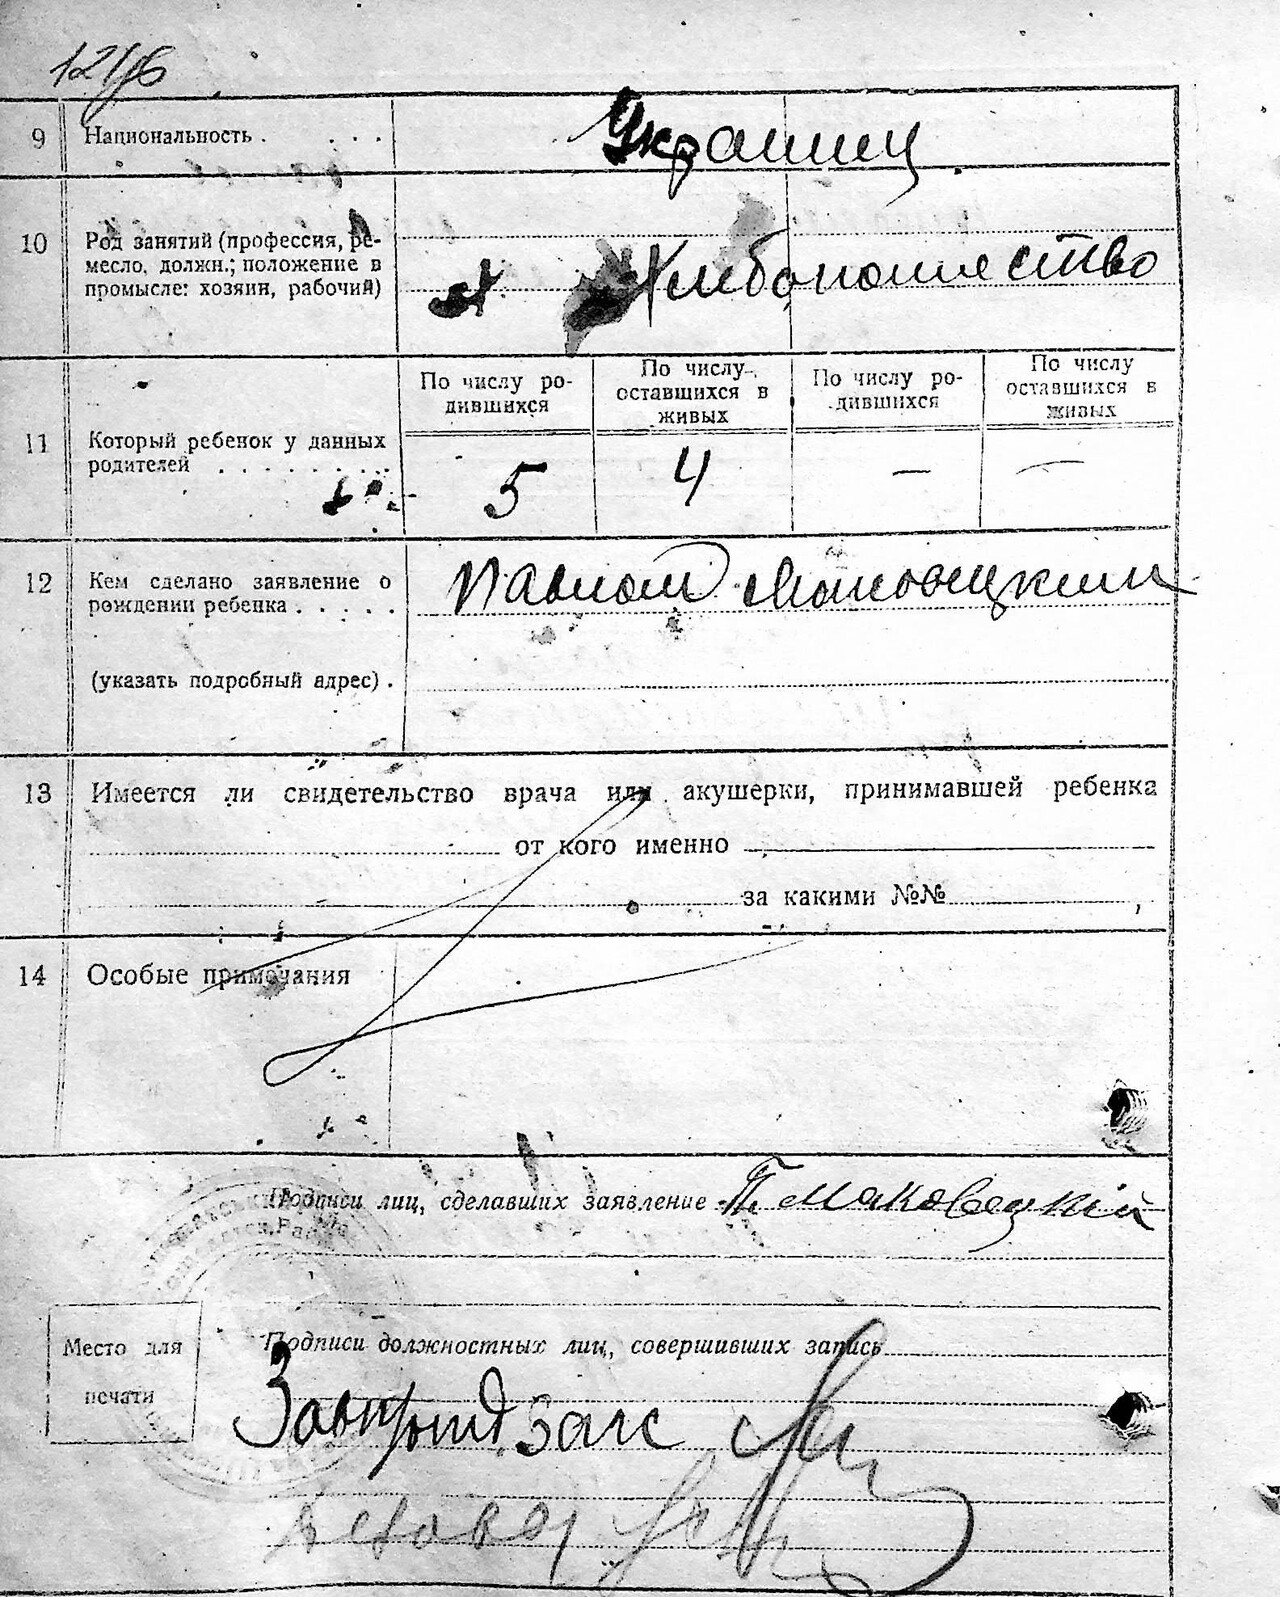 9 Национальность . . . . Украинец
10 Род занятий (профессия, ре-
месло, должн.; положение в
промысле: хозяин, рабочий)
По числу ро-
дившихся
По числу
оставшихся в
живых
По числу ро-
дившихся
По числу
оставшихся в
живых
11 Который ребенок у данных
родителей . . . . . . . . 5 4 — —
12 Кем сделано заявление о
рождении ребенка . . . . . Павлом Маковецким
(указать подробный адрес) .
13 Имеется ли свидетельство врача или акушерки, принимавшей ребенка
от кого именно
за какими №№
14 Особые примечания
Подписи лиц, сделавших заявление П. Маковецкій
Место для
печати
Подписи должностных лиц, совершивших запись
загс